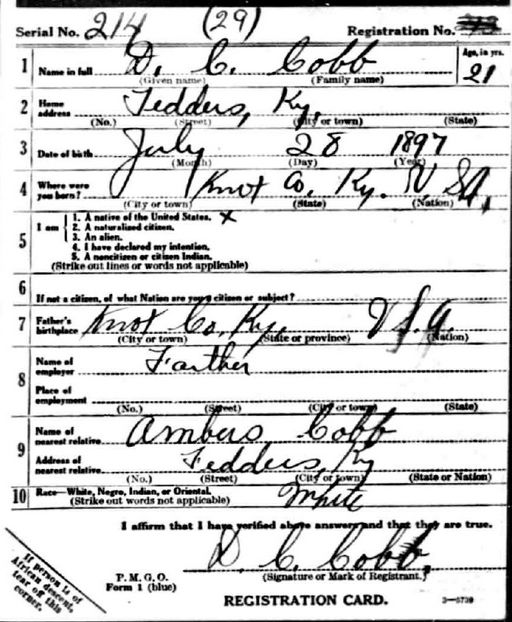 Serial No. 214 (29) Registration No. 43
1 Name in full D. C. Cobb Age, in yrs. 21
(Given name) (Family name)
2 Home address Tedders, Ky.
(No.) (Street) (City or town) (State)
3 Date of birth July 28 1897
(Month) (Day) (Year)
4 Where were you born? Knot Co, Ky. U. S A.
(City or town) (State) (Nation)
5 I am
1. A native of the United States. x
2. A naturalized citizen.
3. An alien.
4. I have declared my intention.
5. A noncitizen or citizen Indian.
(Strike out lines or words not applicable)
6 If not a citizen, of what Nation are you a citizen or subject?
7 Father's birthplace Knot Co, Ky. U S. A.
(City or town) (State or province) (Nation)
8 Name of employer Farther
Place of employment
(No.) (Street) (City or town) (State)
9 Name of nearest relative Ambers Cobb
Address of nearest relative Tedders, Ky
(No.) (Street) (City or town) (State or Nation)
10 Race—White, Negro, Indian, or Oriental. White
(Strike out words not applicable)
I affirm that I have verified above answers and that they are true.
D. C. Cobb
P. M. G. O.
Form 1 (blue)
(Signature or Mark of Registrant.)
REGISTRATION CARD. 3—5739
If person is of
African descent,
tear off this
corner.